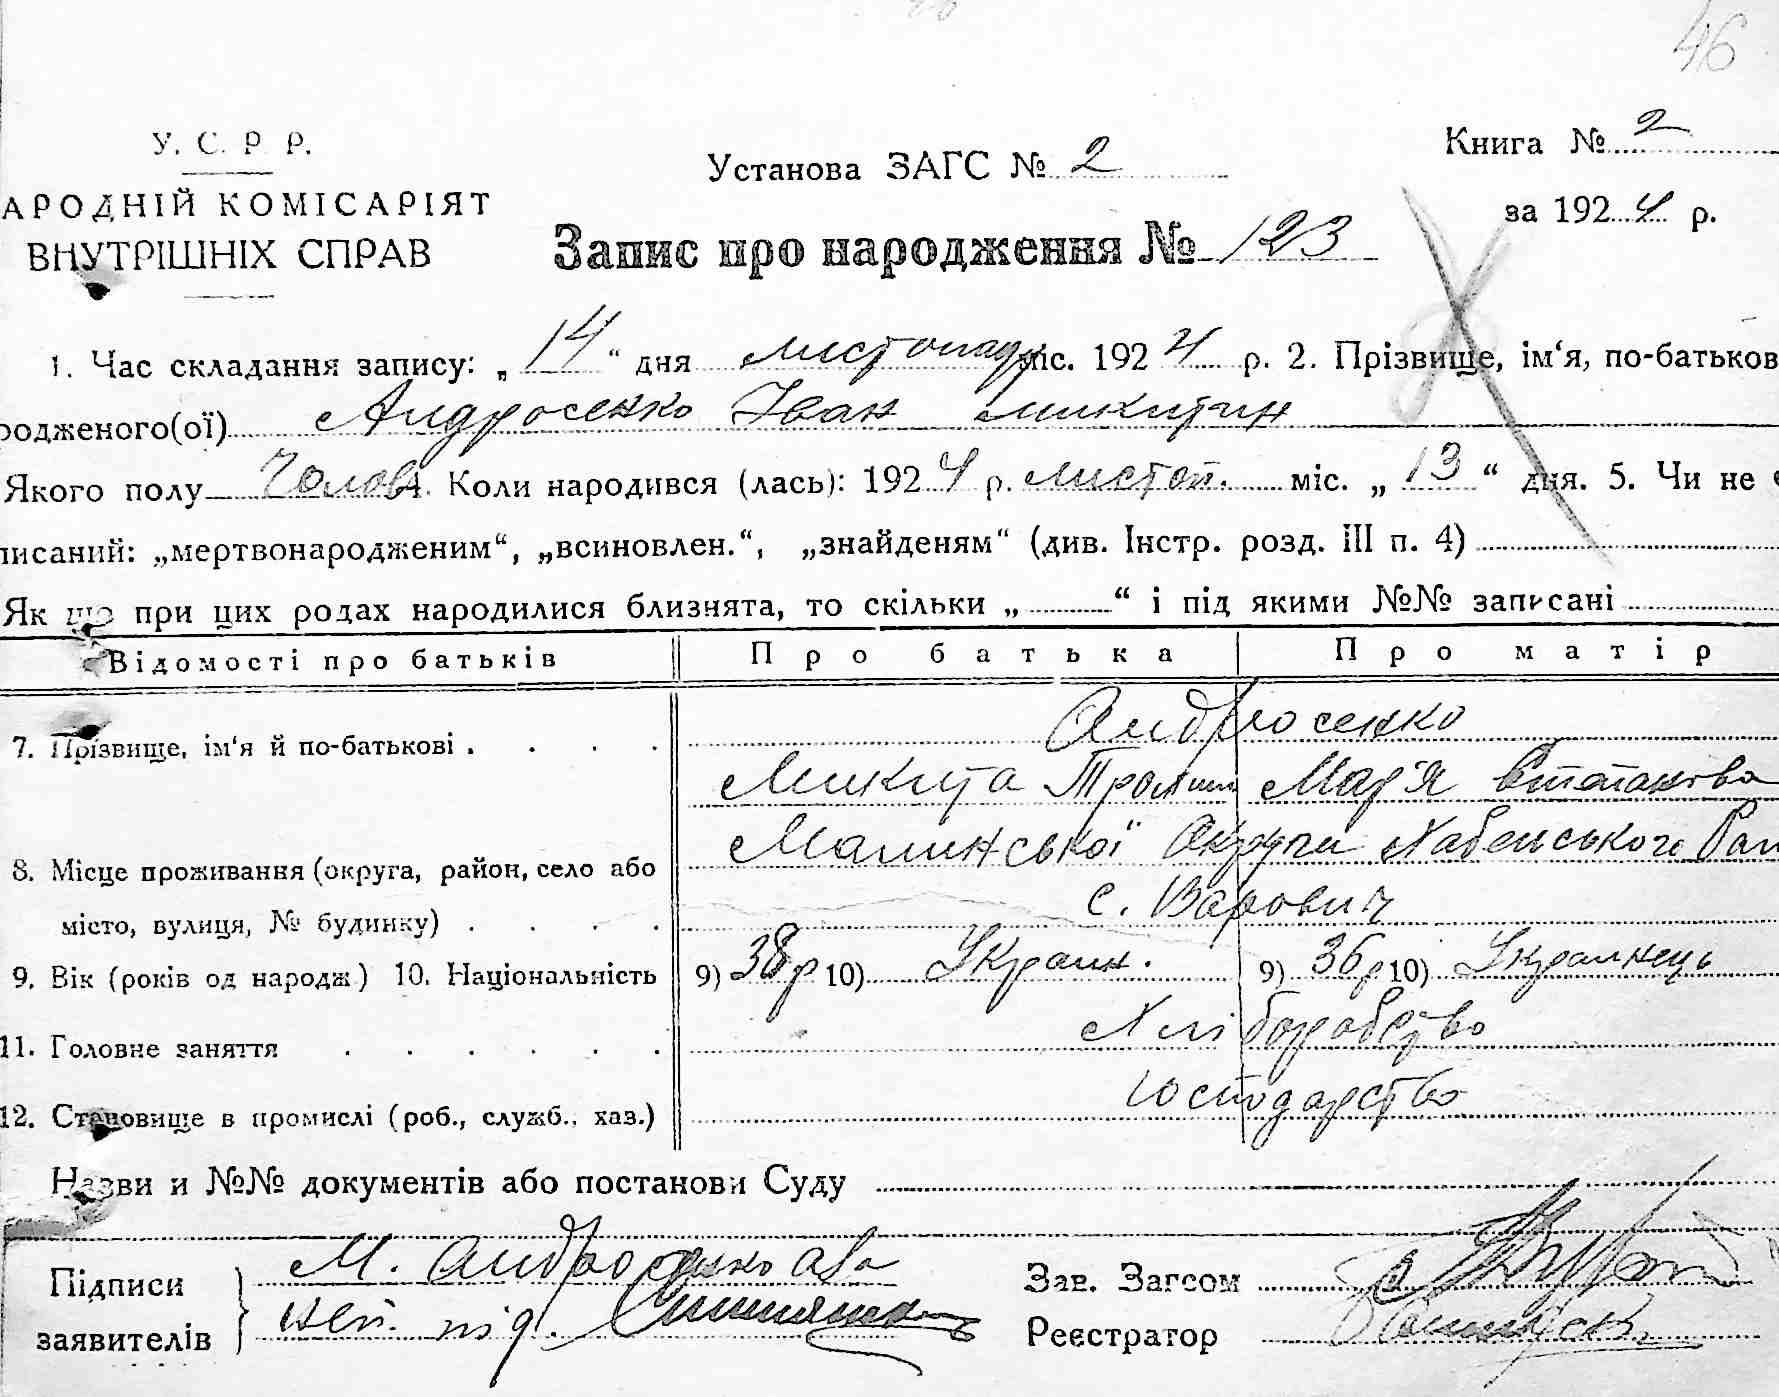 46
У. С. Р. Р.
АРОДНІЙ КОМІСАРІЯТ
ВНУТРІШНІХ СПРАВ
Установа ЗАГС № 2
Книга № 2
за 1924 р.
Запис про народження № 123
1. Час складання запису: „14“ дня листопаду міс. 1924 р. 2. Прізвище, ім‘я, по-батьков
родженого(ої) Андросенко Іван Микитин
Якого полу Чолов 4. Коли народився (лась): 1924 р. листоп. міс. „13“ дня. 5. Чи не є
писаний: „мертвонародженим“, „всиновлен.“, „знайденям“ (див. Інстр. розд. III п. 4)
Як що при цих родах народилися близнята, то скільки „ “ і під якими №№ записані
Відомості про батьків Про батька Про матір
7. Прізвище, ім‘я й по-батькові . . . . Андросенко
Микита Мар‘я Степанова
8. Місце проживання (округа, район, село або Малинської Округи Хабенського Рай
місто, вулиця, № будинку) . . . . с. Варович
9. Вік (років од народж.) 10. Національність 9) 38 р 10) Украин. 9) 36 р 10) Украинець
11. Головне заняття . . . . . . Хліборобство
12. Становище в промислі (роб., служб., хаз.) Господарство
Назви и №№ документів або постанови Суду
Підписи М. Андросенкова
заявителів неп. під.
Зав. Загсом
Реєстратор